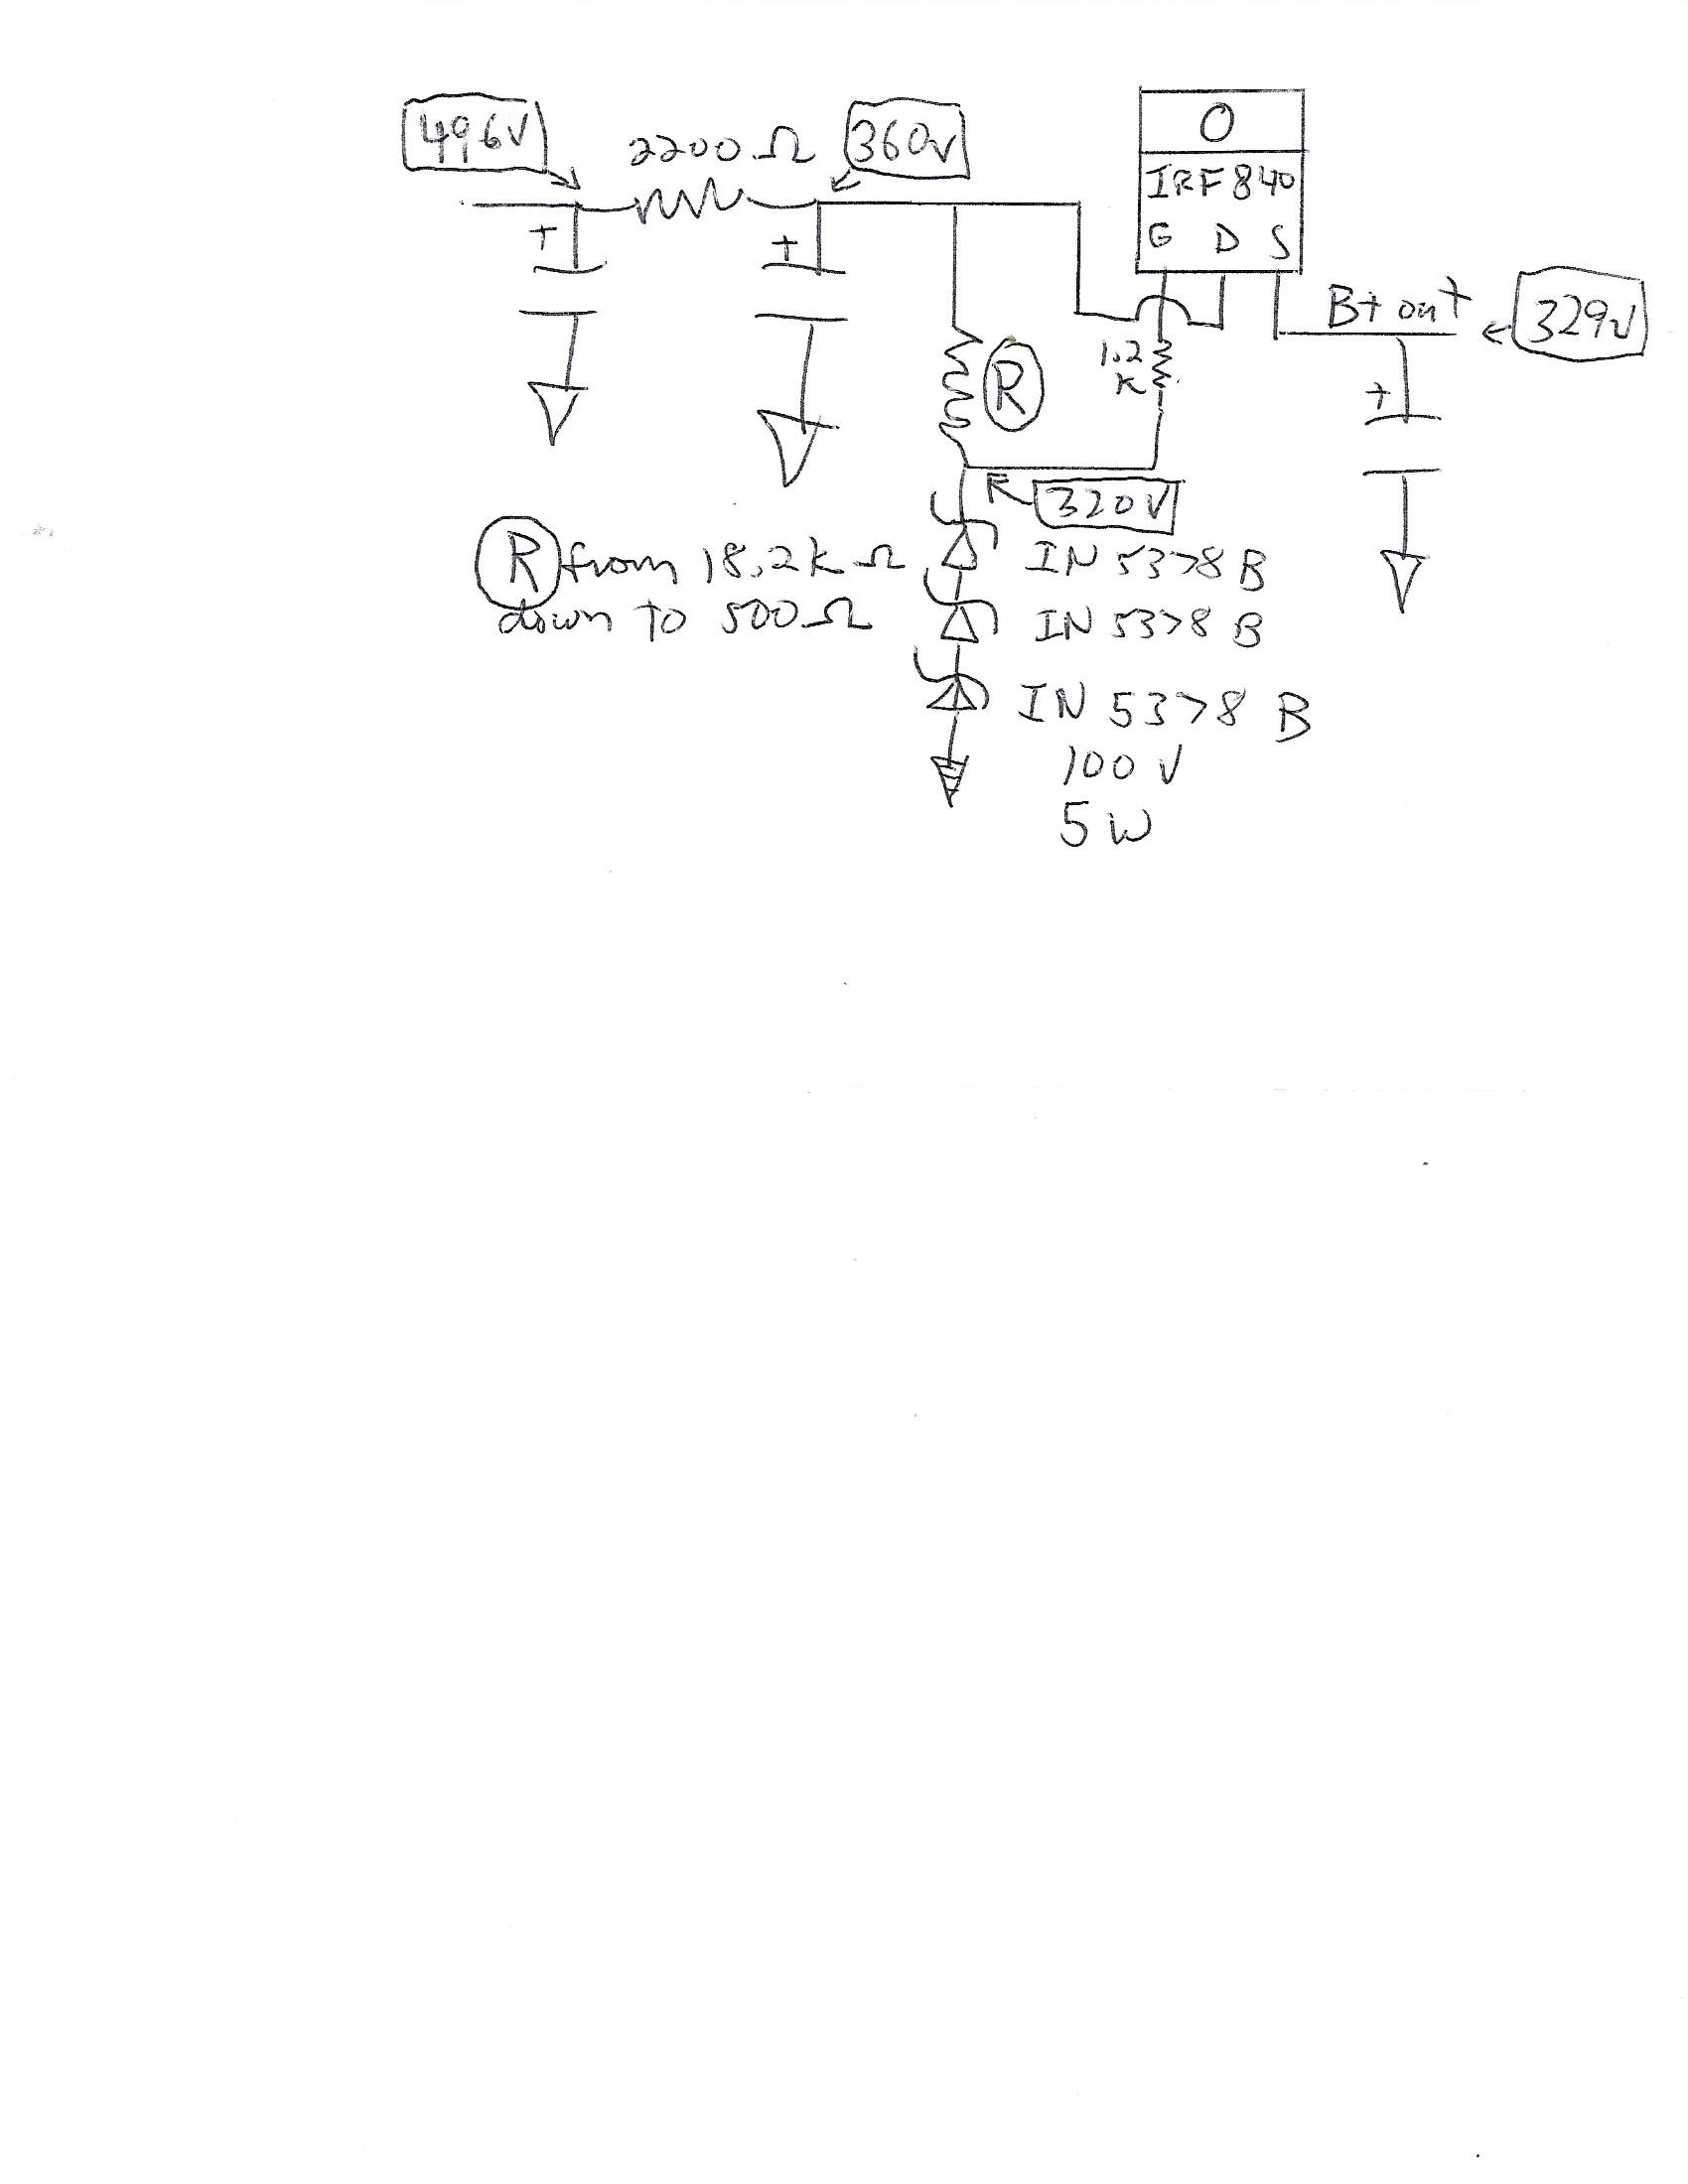 496V
2200 Ω
360V
O
IRF840
G D S
+
+
B+ out
329V
1.2
K
R
+
320V
R from 18.2k Ω
down to 500 Ω
IN 5378 B
IN 5378 B
IN 5378 B
100 V
5 W